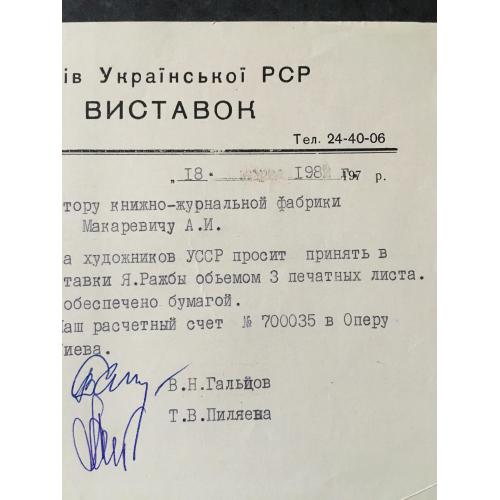 ів Української РСР
ВИСТАВОК
Тел. 24-40-06
„ 18. 198 г. 197 р.
тору книжно-журнальной фабрики
Макаревичу А.И.
а художников УССР просит принять в
тавки Я.Ражбы обьемом 3 печатных листа.
обеспечено бумагой.
Наш расчетный счет № 700035 в Оперу
Киева.
В.Н.Гальцов
Т.В.Пиляева